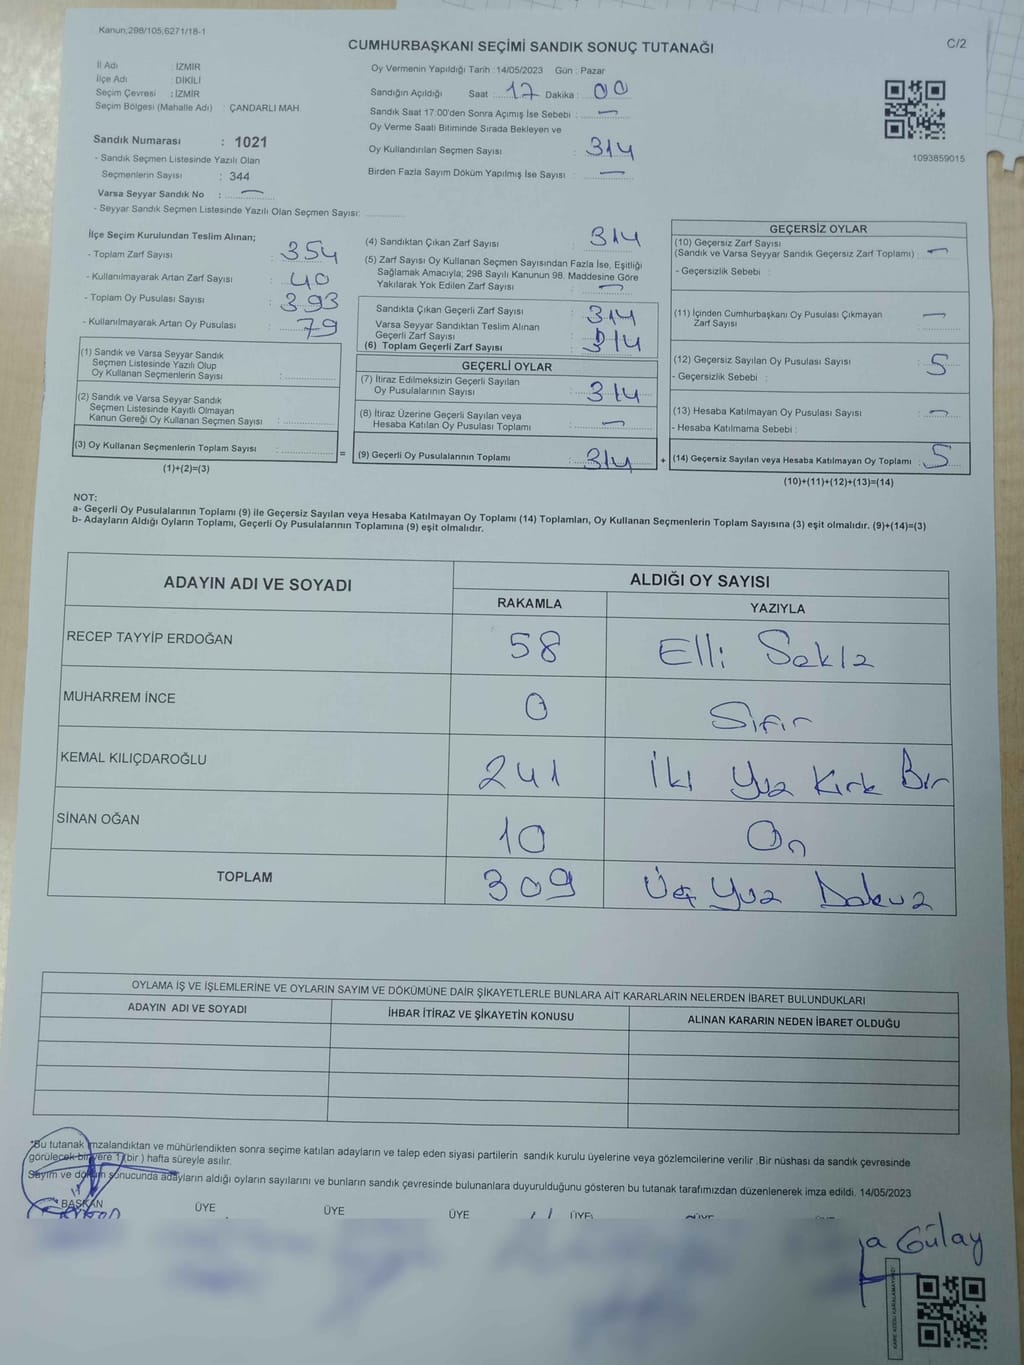 Kanun;298/105;6271/18-1
C/2
CUMHURBAŞKANI SEÇİMİ SANDIK SONUÇ TUTANAĞI
İl Adı : İZMİR
İlçe Adı : DİKİLİ
Seçim Çevresi : İZMİR
Seçim Bölgesi (Mahalle Adı) : ÇANDARLI MAH.
Sandık Numarası : 1021
- Sandık Seçmen Listesinde Yazılı Olan
Seçmenlerin Sayısı : 344
Varsa Seyyar Sandık No : —
- Seyyar Sandık Seçmen Listesinde Yazılı Olan Seçmen Sayısı:
Oy Vermenin Yapıldığı Tarih :14/05/2023 Gün : Pazar
Sandığın Açıldığı Saat : 17 Dakika : 00
Sandık Saat 17:00'den Sonra Açımış İse Sebebi : —
Oy Verme Saati Bitiminde Sırada Bekleyen ve
Oy Kullandırılan Seçmen Sayısı : 314
Birden Fazla Sayım Döküm Yapılmış İse Sayısı : —
1093859015
İlçe Seçim Kurulundan Teslim Alınan;
- Toplam Zarf Sayısı : 354
- Kullanılmayarak Artan Zarf Sayısı : 40
- Toplam Oy Pusulası Sayısı : 393
- Kullanılmayarak Artan Oy Pusulası : 79
(1) Sandık ve Varsa Seyyar Sandık
Seçmen Listesinde Yazılı Olup
Oy Kullanan Seçmenlerin Sayısı :
(2) Sandık ve Varsa Seyyar Sandık
Seçmen Listesinde Kayıtlı Olmayan
Kanun Gereği Oy Kullanan Seçmen Sayısı :
(3) Oy Kullanan Seçmenlerin Toplam Sayısı :
(1)+(2)=(3)
(4) Sandıktan Çıkan Zarf Sayısı : 314
(5) Zarf Sayısı Oy Kullanan Seçmen Sayısından Fazla İse, Eşitliği
Sağlamak Amacıyla; 298 Sayılı Kanunun 98. Maddesine Göre
Yakılarak Yok Edilen Zarf Sayısı : —
Sandıkta Çıkan Geçerli Zarf Sayısı : 314
Varsa Seyyar Sandıktan Teslim Alınan
Geçerli Zarf Sayısı :
(6) Toplam Geçerli Zarf Sayısı : 314
GEÇERLİ OYLAR
(7) İtiraz Edilmeksizin Geçerli Sayılan
Oy Pusulalarının Sayısı : 314
(8) İtiraz Üzerine Geçerli Sayılan veya
Hesaba Katılan Oy Pusulası Toplamı : —
= (9) Geçerli Oy Pusulalarının Toplamı : 314
GEÇERSİZ OYLAR
(10) Geçersiz Zarf Sayısı
(Sandık ve Varsa Seyyar Sandık Geçersiz Zarf Toplamı) : —
- Geçersizlik Sebebi :
(11) İçinden Cumhurbaşkanı Oy Pusulası Çıkmayan
Zarf Sayısı : —
(12) Geçersiz Sayılan Oy Pusulası Sayısı : 5
- Geçersizlik Sebebi :
(13) Hesaba Katılmayan Oy Pusulası Sayısı : —
- Hesaba Katılmama Sebebi :
+ (14) Geçersiz Sayılan veya Hesaba Katılmayan Oy Toplamı : 5
(10)+(11)+(12)+(13)=(14)
NOT:
a- Geçerli Oy Pusulalarının Toplamı (9) ile Geçersiz Sayılan veya Hesaba Katılmayan Oy Toplamı (14) Toplamları, Oy Kullanan Seçmenlerin Toplam Sayısına (3) eşit olmalıdır. (9)+(14)=(3)
b- Adayların Aldığı Oyların Toplamı, Geçerli Oy Pusulalarının Toplamına (9) eşit olmalıdır.
ADAYIN ADI VE SOYADI ALDIĞI OY SAYISI
RAKAMLA YAZIYLA
RECEP TAYYİP ERDOĞAN 58 Elli Sekiz
MUHARREM İNCE 0 Sıfır
KEMAL KILIÇDAROĞLU 241 İki Yüz Kırk Bir
SİNAN OĞAN 10 On
TOPLAM 309 Üç Yuz Dokuz
OYLAMA İŞ VE İŞLEMLERİNE VE OYLARIN SAYIM VE DÖKÜMÜNE DAİR ŞİKAYETLERLE BUNLARA AİT KARARLARIN NELERDEN İBARET BULUNDUKLARI
ADAYIN ADI VE SOYADI İHBAR İTİRAZ VE ŞİKAYETİN KONUSU ALINAN KARARIN NEDEN İBARET OLDUĞU
*Bu tutanak imzalandıktan ve mühürlendikten sonra seçime katılan adayların ve talep eden siyasi partilerin sandık kurulu üyelerine veya gözlemcilerine verilir .Bir nüshası da sandık çevresinde
görülecek bir yere 1 (bir ) hafta süreyle asılır.
Sayım ve döküm sonucunda adayların aldığı oyların sayılarını ve bunların sandık çevresinde bulunanlara duyurulduğunu gösteren bu tutanak tarafımızdan düzenlenerek imza edildi. 14/05/2023
BAŞKAN ÜYE ÜYE ÜYE ÜYE ÜYE
Gülay